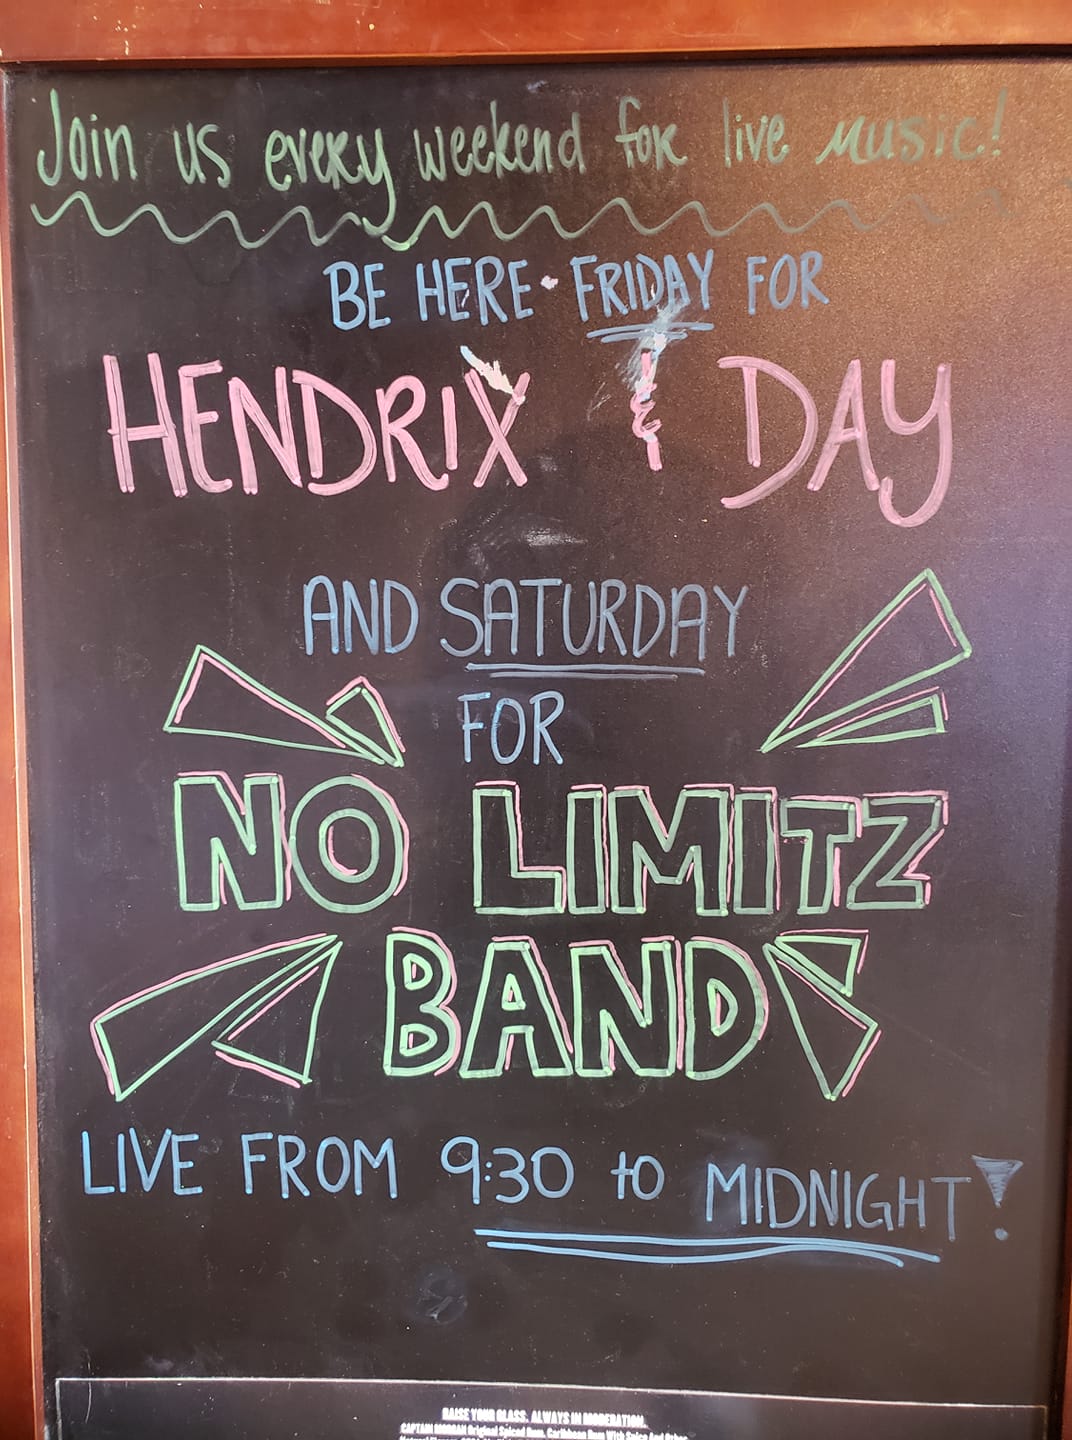 Join us every weekend for live music!
BE HERE FRIDAY FOR
HENDRIX & DAY
AND SATURDAY
FOR
NO LIMITZ
BAND
LIVE FROM 9:30 to MIDNIGHT!
RAISE YOUR GLASS. ALWAYS IN MODERATION.
CAPTAIN MORGAN Original Spiced Rum. Caribbean Rum With Spice And Other